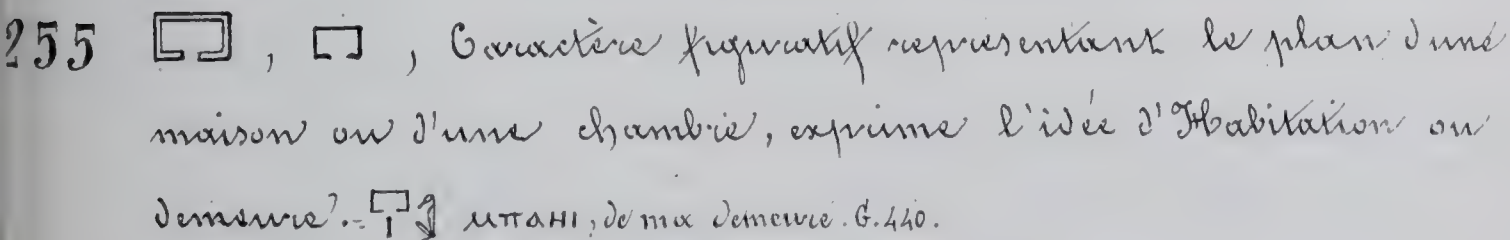 255 𓉐, 𓉐, Caractère figuratif représentant le plan d'une
maison ou d'une chambre, exprime l'idée d'Habitation ou
demeure. = 𓉐𓏤 ⲙⲡⲁⲏⲓ, de ma demeure. G. 440.